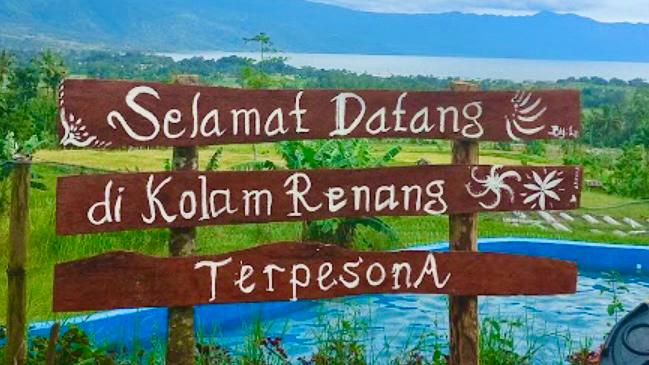 Selamat Datang
di Kolam Renang
TerpesonA